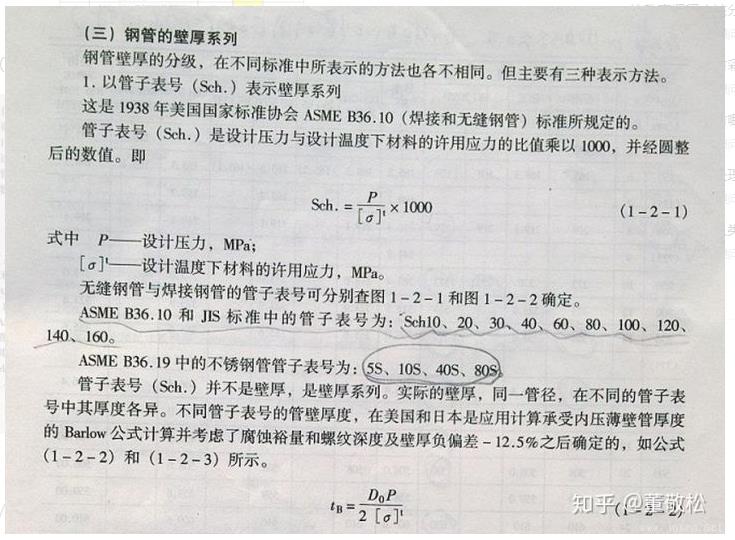 （三）钢管的壁厚系列
钢管壁厚的分级，在不同标准中所表示的方法也各不相同。但主要有三种表示方法。
1. 以管子表号（Sch.）表示壁厚系列
这是 1938 年美国国家标准协会 ASME B36.10（焊接和无缝钢管）标准所规定的。
管子表号（Sch.）是设计压力与设计温度下材料的许用应力的比值乘以 1000，并经圆整
后的数值。即
Sch. = P/[σ]ᵗ × 1000 （1-2-1）
式中 P——设计压力，MPa；
[σ]ᵗ——设计温度下材料的许用应力，MPa。
无缝钢管与焊接钢管的管子表号可分别查图 1-2-1 和图 1-2-2 确定。
ASME B36.10 和 JIS 标准中的管子表号为：Sch10、20、30、40、60、80、100、120、
140、160。
ASME B36.19 中的不锈钢管管子表号为：5S、10S、40S、80S。
管子表号（Sch.）并不是壁厚，是壁厚系列。实际的壁厚，同一管径，在不同的管子表
号中其厚度各异。不同管子表号的管壁厚度，在美国和日本是应用计算承受内压薄壁管厚度
的 Barlow 公式计算并考虑了腐蚀裕量和螺纹深度及壁厚负偏差 -12.5%之后确定的，如公式
（1-2-2）和（1-2-3）所示。
t_B = D₀P/2[σ]ᵗ （1-2-2）
知乎 @董敬松